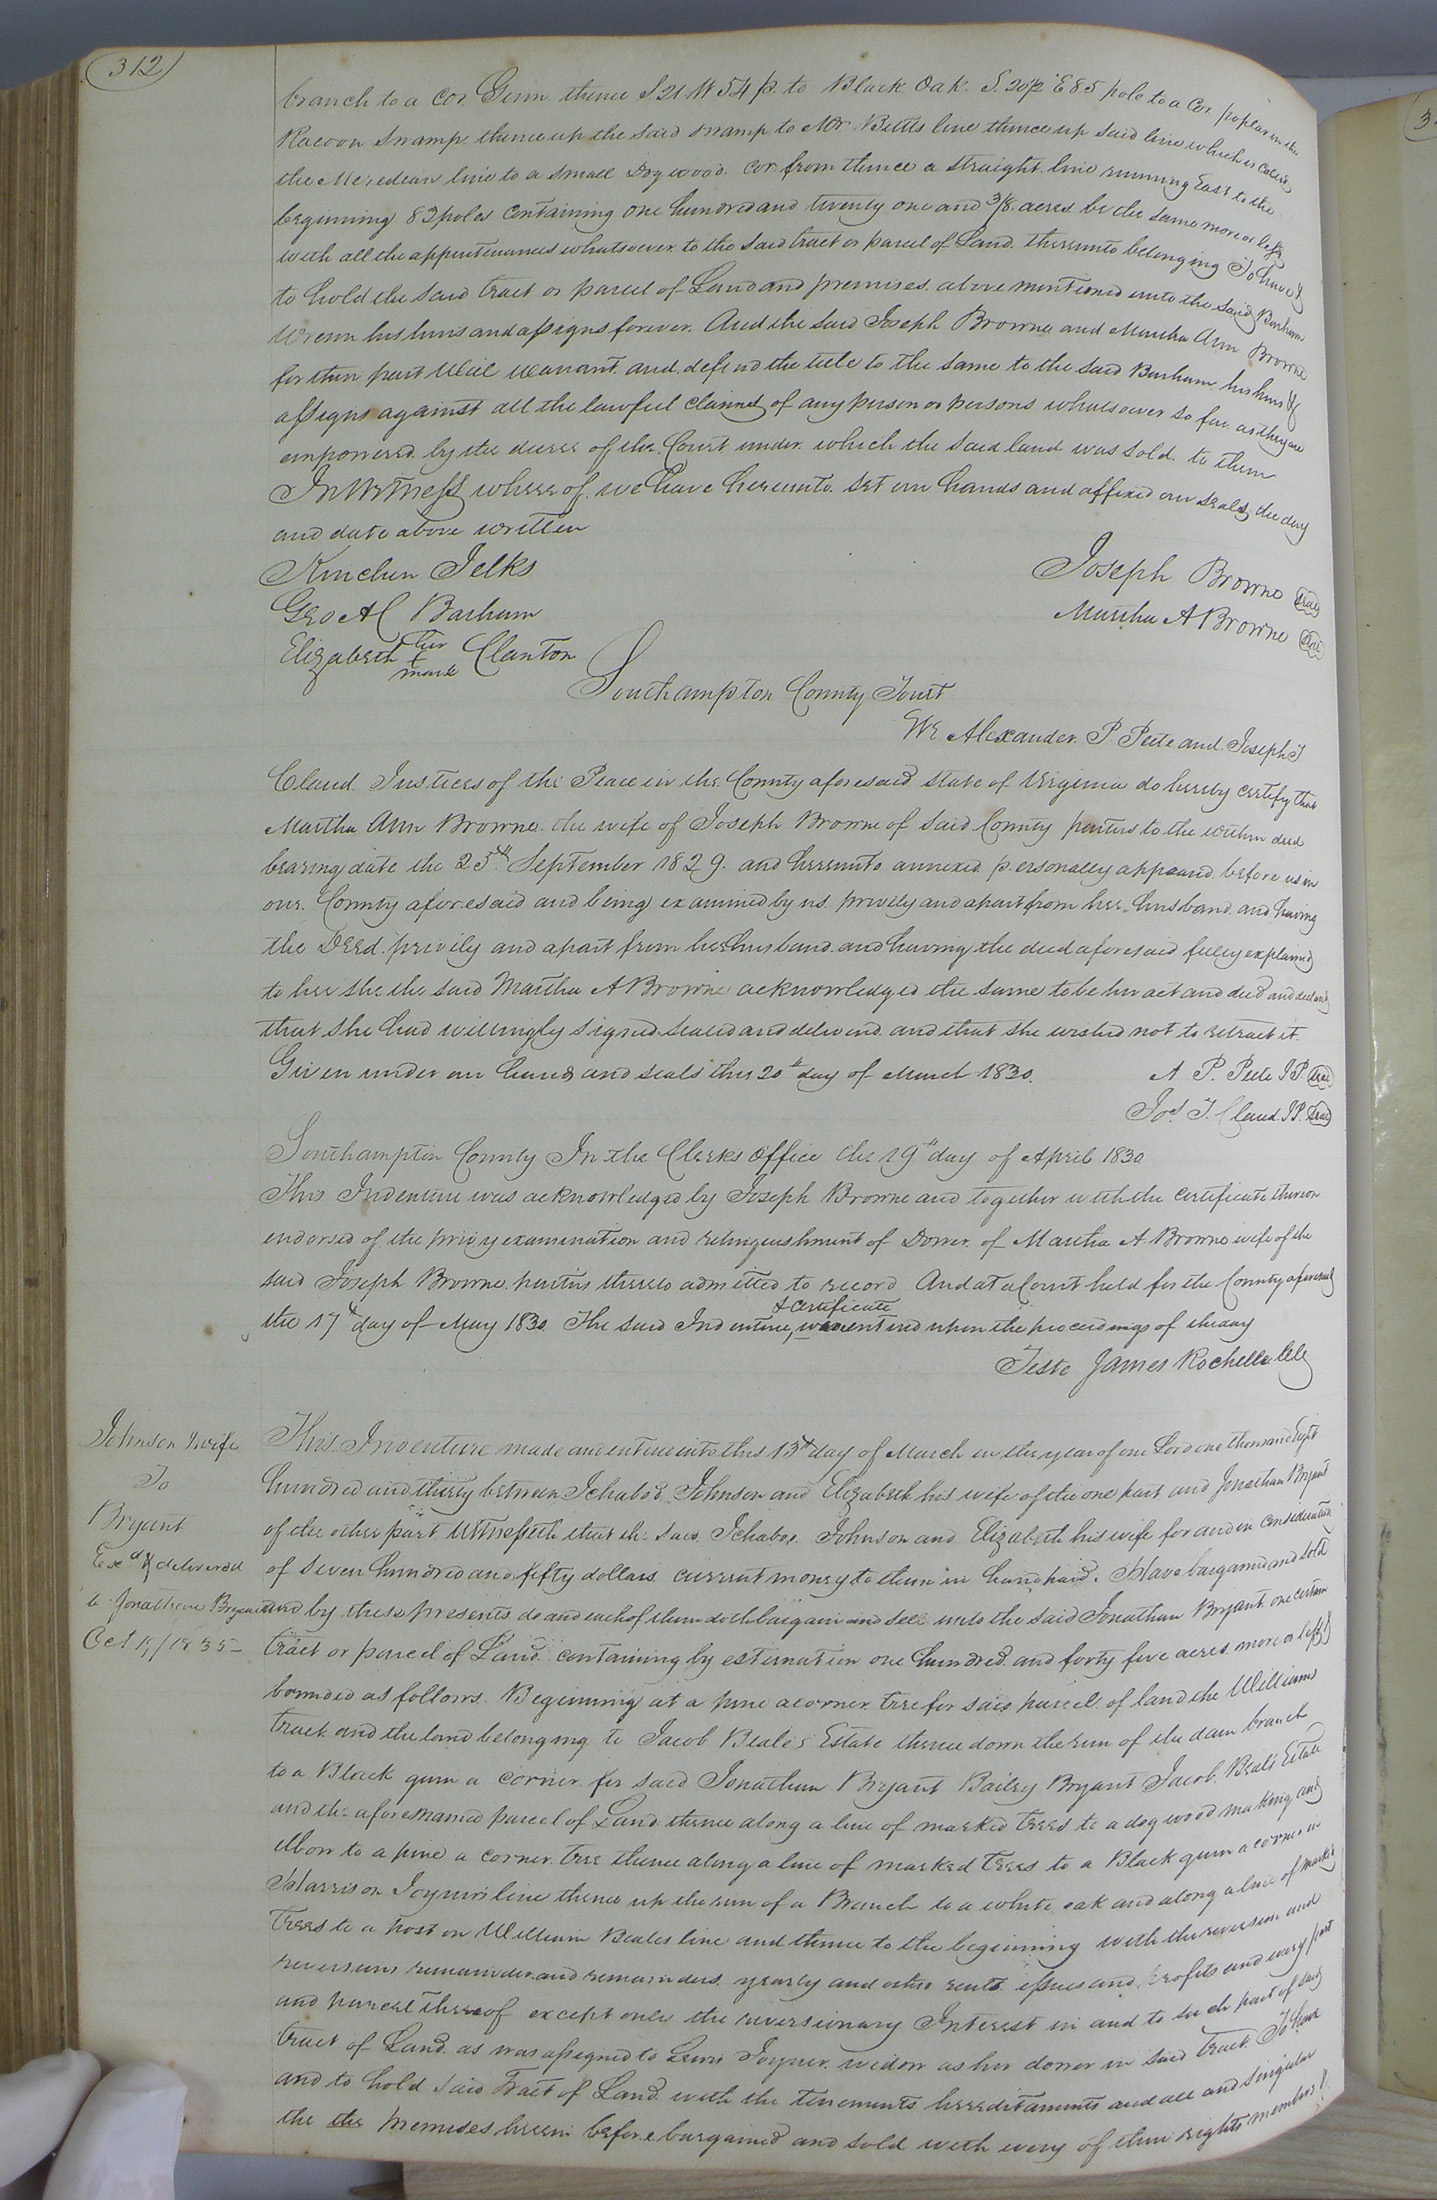 312
branch to a cor. Gum. thence S. 21 W 54 p. to Black Oak. S. 20½ E 85 pole to a Cor. poplar in the
Racoon Swamp. thence up the said swamp to Mr Bittls line thence up said line which is called
the Meredean line to a small Dogwood. cor. from thence a straight line running East to the
beginning 82 poles Containing One hundred and twenty one and 3/8 acres. be the same more or less
with all the appurtenances whatsoever to the said tract or parcel of Land. thereunto belonging To have &
to hold the said tract or parcel of Land and premises. above mentioned unto the said Barham
his heirs and assigns forever. And the said Joseph Browne and Martha Ann Browne
for their part Will warrant. and defend the title to the same to the said Barham his heirs &
assigns against all the lawful claimes of any person or persons whatsoever so far as they are
empowered by the decree of the Court under which the said land was sold to them
In Witness whereof we have hereunto set our hands and affixed our seals the day
and date above written
Kinchen Jelks Joseph Browne seal
Geo A C Barham Martha A Browne seal
Elizabeth her + mark Clanton
Southampton County Court
We Alexander. P. Peete and Joseph T
Claud Justices of the Peace in the County aforesaid state of Virginia do hereby certify that
Martha Ann Browne the wife of Joseph Browne of said County parties to the within deed
bearing date the 25th September 1829. and hereunto annexed personally appeared before us in
our County aforesaid and being examined by us privily and apart from her husband. and having
the Deed privily and apart from her husband. and having the deed aforesaid fully explained
to her she the said Martha A Browne acknowledged the same to be her act and deed and declared
that she had willingly signed sealed and delivered and that she wished not to retract it.
Given under our hands and seals this 20th day of March 1830. A P. Peete JP seal
Jos. T. Claud. JP. seal
Southampton County In the Clerks Office the 19th day of April 1830
This Indenture was acknowledged by Joseph Browne and together with the certificate thereon
endorsed of the privy examination and relinquishment of Dower of Martha A. Browne wife of the
said Joseph Browne parties thereto admitted to record And at a Court held for the County aforesaid
& certificate
the 17th day of May 1830 The said Indenture, were entered upon the proceedings of the day
Teste James Rochelle Clk
Johnson & wife
To
Bryant
Exd & delivered
to Jonathan Bryant
Oct 19/1835
This Indenture made and entered into this 13th day of March in the year of our Lord one thousand Eight
hundred and thirty between Ichabod Johnson and Elizabeth his wife of the one part and Jonathan Bryant
of the other part Witnesseth that the said Ichabod Johnson and Elizabeth his wife for and in consideration
of seven hundred and fifty dollars current money to them in hand paid. Have bargained and sold
and by these presents do and each of them doth bargain and sell unto the said Jonathan Bryant one certain
tract or parcel of Land containing by estimation one hundred and forty five acres more or less &
bounded as follows. Beginning at a pine a corner tree for said parcel of land the Williams
track and the land belonging to Jacob Beale's Estate thence down the run of the dam branch
to a Black gum a corner for said Jonathan Bryant Bailey Bryant Jacob Beals Estate
and the aforesnamed parcel of Land thence along a line of marked trees to a dogwood making and
elbow to a pine a corner tree thence along a line of marked trees to a Black gum a corner in
Harrison Joyner's line thence up the run of a Branch to a white oak and along a line of marked
Trees to a post on William Beales line and thence to the beginning with the reversion and
reversions remainder and remainders yearly and other rents issues and profits and every part
and parcel thereof except only the reversionary Interest in and to such part of said
tract of Land as was assigned to Joyner widow as her dower in said tract To have
and to hold said Tract of Land with the tenements hereditaments and all and singular
the the premises herein before bargained and sold with every of their rights members &